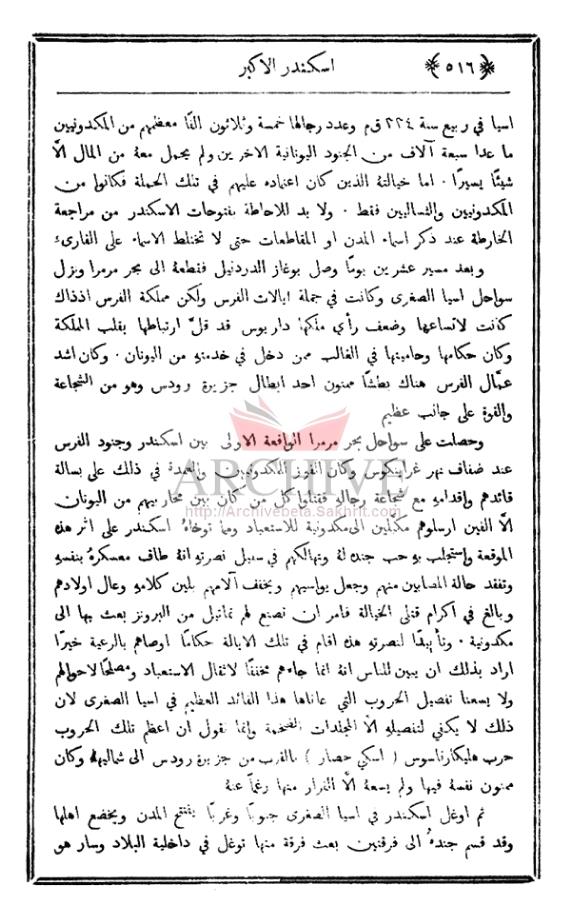 ﴿٥١٦﴾ اسكندر الاكبر
اسيا في ربيع سنة ٢٢٤ ق م وعدد رجالها خمسة وثلاثون الفًا معظمهم من المكدونيين
ما عدا سبعة آلاف من الجنود اليونانية الاخرين ولم يحمل معهُ من المال الَّا
شيئًا يسيرًا . اما خيالتهُ الذين كان اعتماده عليهم في تلك الحملة فكانوا من
المكدونيين والثساليين فقط . ولا بد للاحاطة بفتوحات الاسكندر من مراجعة
الخارطة عند ذكر اسماء المدن او المقاطعات حتى لا تختلط الاسماء على القارئ
وبعد مسير عشرين يومًا وصل بوغاز الدردنيل فقطعهُ الى بحر مرمرا ونزل
سواحل اسيا الصغرى وكانت في جملة ايالات الفرس ولكن مملكة الفرس اذذاك
كانت لاتساعها وضعف رأي ملكها داريوس قد قلَّ ارتباطها بقلب المملكة
وكان حكامها وحاميتها في الغالب ممن دخل في خدمتهِ من اليونان . وكان اشد
عمَّال الفرس هناك بطشًا ممنون احد ابطال جزيرة رودس وهو من الشجاعة
والقوة على جانب عظيم
وحصلت على سواحل بحر مرمرا الواقعة الاولى بين اسكندر وجنود الفرس
عند ضفاف نهر غرانيكوس وكان الفوز للمكدونيين والعمدة في ذلك على بسالة
قائدهم واقدامهِ مع شجاعة رجالهِ فقتلوا كل من كان بين محاربيهم من اليونان
الَّا الفين ارسلوهم مكبَّلين الى مكدونية للاستعباد ومما توخاهُ اسكندر على اثر هذه
الموقعة واستجلب بهِ حب جنده لهُ وتهالكهم في سبيل نصرتهِ انهُ طاف معسكرهُ بنفسهِ
وتفقد حالة المصابين منهم وجعل يواسيهم ويخفف آلامهم بلين كلامهِ وعال اولادهم
وبالغ في اكرام قتلى الخيالة فامر ان تصنع لهم تماثيل من البرونز بعث بها الى
مكدونية . وتأييدًا لنصرتهِ هذه اقام في تلك الايالة حكامًا اوصاهم بالرعية خيرًا
اراد بذلك ان يبين للناس انهُ انما جاءهم مخففًا لاثقال الاستعباد ومصلحًا لاحوالهم
ولا يسعنا تفصيل الحروب التي عاناها هذا القائد العظيم في اسيا الصغرى لان
ذلك لا يكفي لتفصيلهِ الَّا المجلدات الضخمة وانما نقول ان اعظم تلك الحروب
حرب هليكارناسوس ( اسكي حصار ) بالقرب من جزيرة رودس الى شماليها وكان
ممنون نفسهُ فيها ولم يسعهُ الَّا الفرار منها رغمًا عنهُ
ثم اوغل اسكندر في اسيا الصغرى جنوبًا وغربًا يفتتح المدن ويخضع اهلها
وقد قسم جندهُ الى فرقتين بعث فرقة منها توغل في داخلية البلاد وسار هو
ARCHIVE
http://Archivebeta.Sakhrit.com